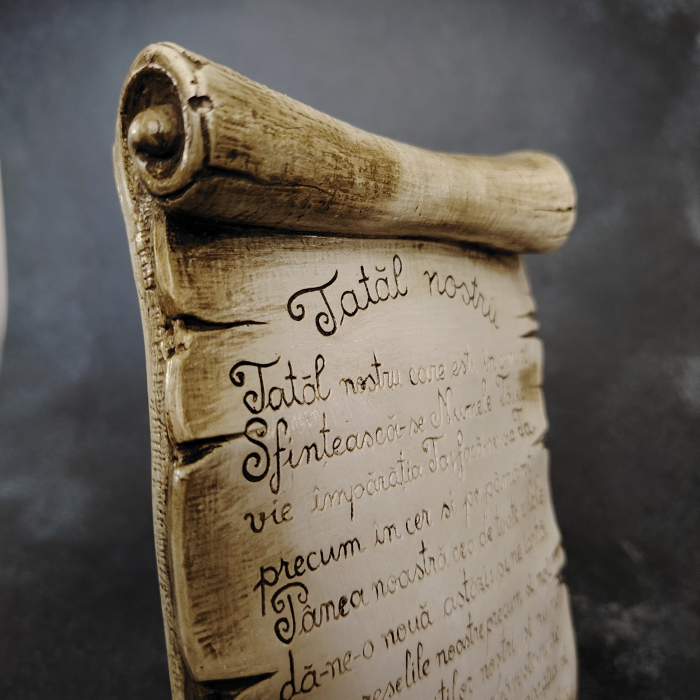 Tatăl nostru
Tatăl nostru care ești în
Sfințească-se Numele Tău
vie împărăția Ta, facă-se voia Ta,
precum în cer și pe pămînt
Pânea noastră cea de toate zilele
dă-ne-o nouă astăzi și ne iartă
greșelile noastre precum și noi
nostri